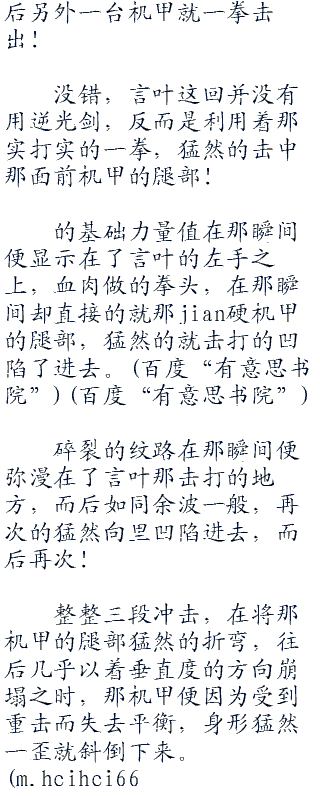 后另外一台机甲就一拳击
出！
没错，言叶这回并没有
用逆光剑，反而是利用着那
实打实的一拳，猛然的击中
那面前机甲的腿部！
的基础力量值在那瞬间
便显示在了言叶的左手之
上，血肉做的拳头，在那瞬
间却直接的就那jian硬机甲
的腿部，猛然的就击打的凹
陷了进去。(百度“有意思书
院”)(百度“有意思书院”)
碎裂的纹路在那瞬间便
弥漫在了言叶那击打的地
方，而后如同余波一般，再
次的猛然向里凹陷进去，而
后再次！
整整三段冲击，在将那
机甲的腿部猛然的折弯，往
后几乎以着垂直度的方向崩
塌之时，那机甲便因为受到
重击而失去平衡，身形猛然
一歪就斜倒下来。
(m.hcihci66